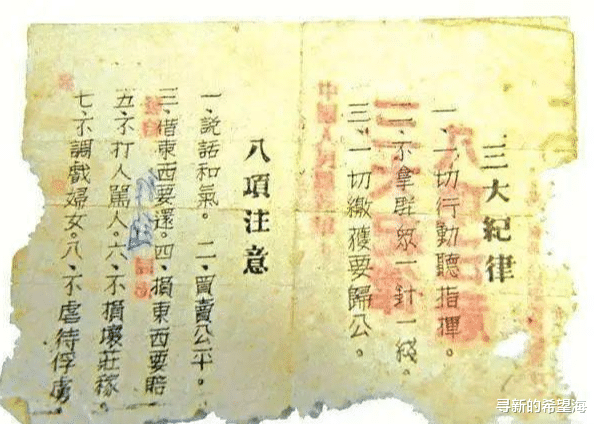 三大紀律
一、一切行動聽指揮。
二、不拿群众一針一綫。
三、一切繳獲要歸公。
八項注意
一、説話和氣。二、買賣公平。
三、借東西要還。四、損東西要賠
五、不打人罵人。六、不損壞莊稼
七、不調戲婦女八、不虐待俘虜
中國人民
寻新的希望海